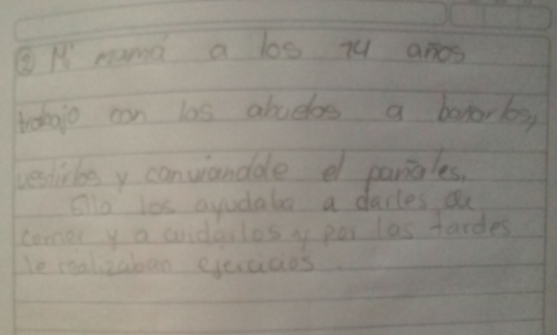 ② Mi mamá a los 14 años
trabajo con los abuelos a bañarlos,
vestirlos y canviandole el pañales.
Ella los ayudaba a darles de
comer y a cuidarlos y por las tardes
le realizaban ejercicios.